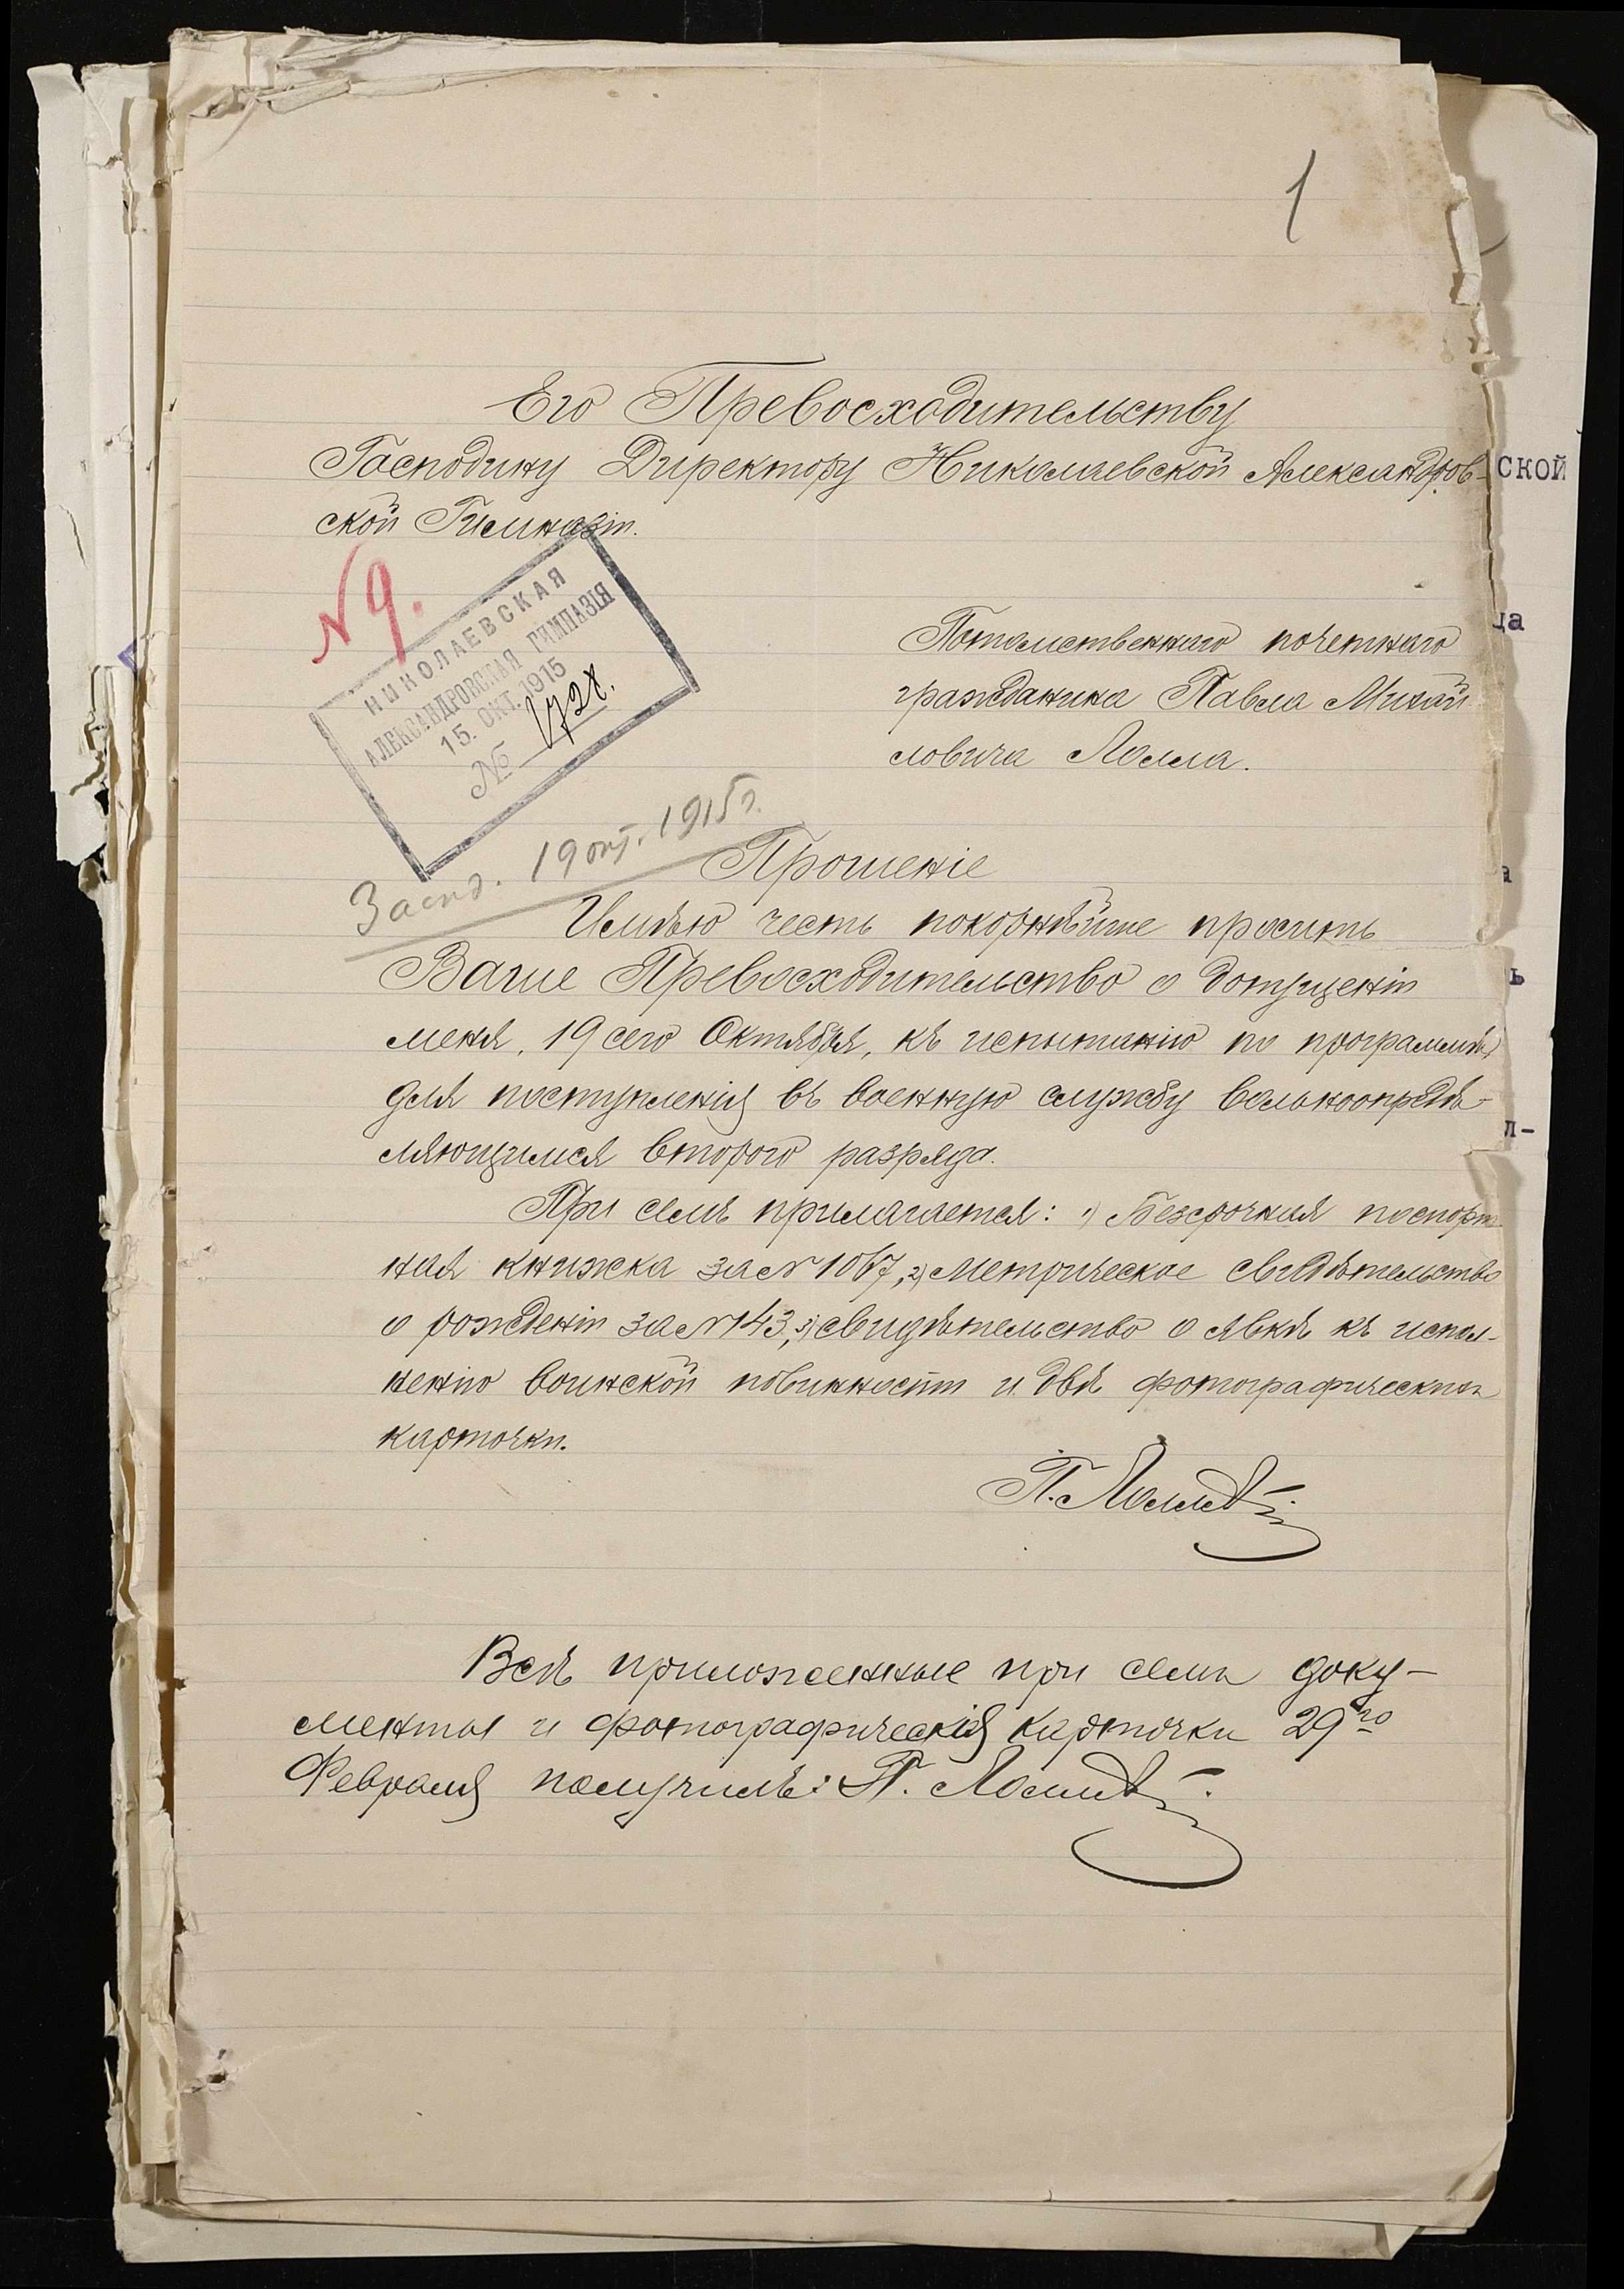 1
Его Превосходительству
Господину Директору Николаевской Александров-
ской Гимназіи.
№ 9.
НИКОЛАЕВСКАЯ
АЛЕКСАНДРОВСКАЯ ГИМНАЗІЯ
15. ОКТ. 1915
№ 1728.
Потомственнаго почетнаго
гражданина Павла Михай
ловича Лолла.
19 окт. 1915 г.
Прошеніе
Имѣю честь покорнѣйше просить
Ваше Превосходительство о допущеніи
меня, 19 сего Октября, къ испытанію по программѣ
для поступленія въ военную службу вольноопредѣ-
ляющимся второго разряда.
При семъ прилагается: 1) Безсрочная паспорт
ная книжка за № 1067, 2) Метрическое свидѣтельство
о рожденіи за № 143, 3) свидѣтельство о явкѣ къ испол-
ненію воинской повинности и двѣ фотографическихъ
карточки.
П. Лоллъ
Всѣ приложенные при семъ доку-
менты и фотографическія карточки 29го
Февраля получилъ: П. Лоллъ.
ской
ца
а
ь
л-